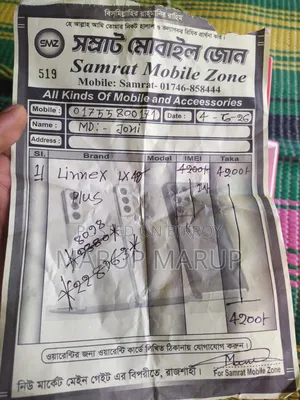 বিসমিল্লাহির রাহমানির রাহিম
হে আল্লাহ আমি তোমার নিকট হালাল ও কল্যাণকর রিযিক প্রার্থনা করছি।
SMZ
সম্রাট মোবাইল জোন
519
Samrat Mobile Zone
Mobile: Samrat- 01746-858444
All Kinds Of Mobile and Acceessories
Mobile : 01755800141 Date : 4-6-26
Name : MD:- Joni
Address :
Sl. Brand Model IMEI Taka
1 Linnex LX48 4200/- 4200/-
Plus
8098
*2280*
*228363*
MARUP MARUP
4200/-
ওয়ারেন্টির জন্য ওয়ারেন্টি কার্ডে লিখিত ঠিকানায় যোগাযোগ করুন।
নিউ মার্কেট মেইন গেইট এর বিপরীতে, রাজশাহী।
For Samrat Mobile Zone